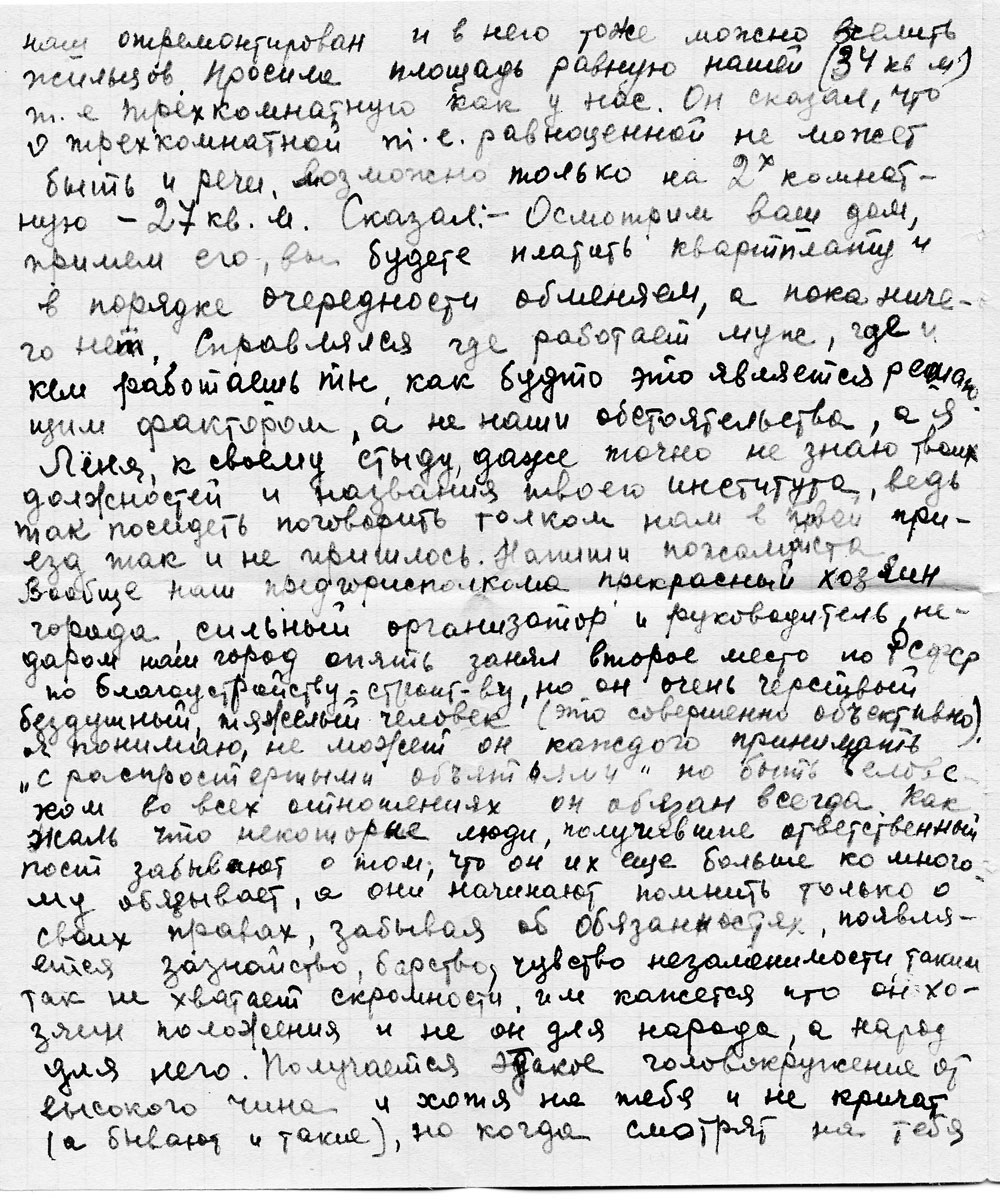 наш отремонтирован и в него тоже можно вселить
жильцов Просила площадь равную нашей (34 кв м)
т. е трёхкомнатную как у нас. Он сказал, что
о трехкомнатной т. е. равноценной не может
быть и речи, возможно только на 2х комнат-
ную – 27 кв. м. Сказал: – Осмотрим ваш дом,
примем его, вы будете платить квартплату и
в порядке очередности обменяем, а пока ниче-
го нет, Справлялся где работает муж, где и
кем работаешь ты, как будто это является решаю-
щим фактором, а не наши обстоятельства, а я
Лёня, к своему стыду, даже точно не знаю твоих
должностей и названия твоего института, ведь
так посидеть поговорить толком нам в твой при-
езд так и не пришлось. Напиши пожалуйста
Вообще наш предгорисполкома прекрасный хозяин
города, сильный организатор и руководитель, не-
даром наш город опять занял второе место по РСФСР
по благоустройству и строит-ву, но он очень черствый
бездушный, тяжелый человек (это совершенно объективно).
Я понимаю, не может он каждого принимать
„с распростертыми объятьями" но быть челове-
ком во всех отношениях он обязан всегда. Как
жаль что некоторые люди, получившие ответственный
пост забывают о том, что он их еще больше ко много-
му обязывает, а они начинают помнить только о
своих правах, забывая об обязанностях, появля-
ется зазнайство, барство, чувство незаменимости, таким
так не хватает скромности, им кажется что он хо-
зяин положения и не он для народа, а народ
для него. Получается этакое головокружение от
высокого чина и хотя на тебя и не кричат
(а бывают и такие), но когда смотрят на тебя